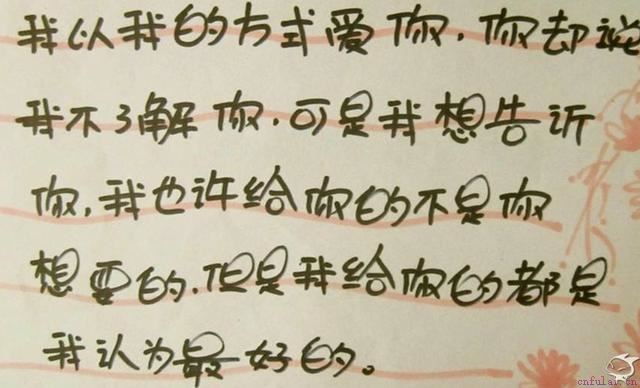 我以我的方式爱你,你却说
我不了解你,可是我想告诉
你,我也许给你的不是你
想要的,但是我给你的都是
我认为最好的。
cnfulai.cn